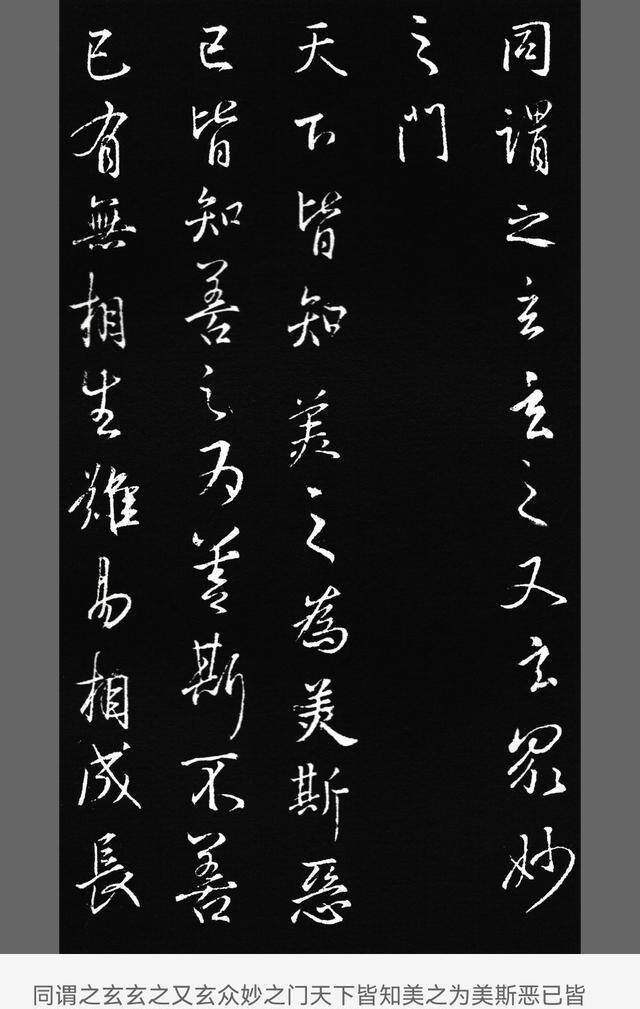 同謂之玄玄之又玄眾妙
之門
天下皆知美之為美斯惡
已皆知善之为善斯不善
已有無相生難易相成長
同谓之玄玄之又玄众妙之门天下皆知美之为美斯恶已皆